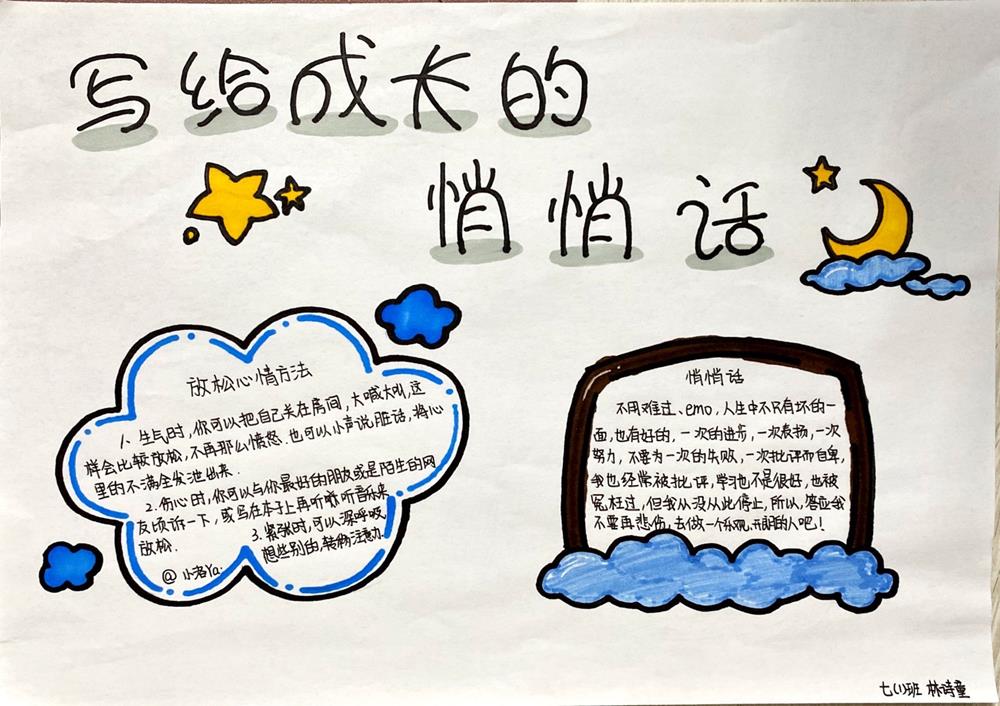 写给成长的
悄悄话
放松心情方法
1、生气时,你可以把自己关在房间,大喊大叫,这
样会比较放松,不再那么愤怒.也可以小声说脏话,将心
里的不满全发泄出来.
2. 伤心时,你可以与你最好的朋友或是陌生的网
友倾诉一下,或写在本子上再听歌听音乐来
放松.
3. 紧张时,可以深呼吸
想些别的,转移注意力
@ 小洛Ya.
悄悄话
不用难过、emo,人生中不只有坏的一
面,也有好的,一次的进步,一次表扬,一次
努力,不要为一次的失败,一次批评而自卑,
我也经常被批评,学习也不是很好,也被
冤枉过,但我从没从此停止,所以,答应我
不要再悲伤,去做一个乐观,开朗的人吧!
七(1)班 林诗童